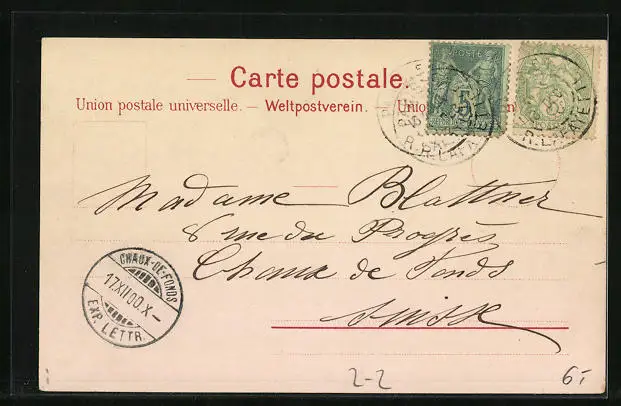 Carte postale.
Union postale universelle. — Weltpostverein. — Unio
POSTE
5
5
R. LAFA
R. LAFAYETTE
Madame Blattner
8 rue du Progrès
Chaux de Fonds
Suisse
CHAUX-DE-FONDS
17.XII.00.X–
EXP. LETTR.
2-2
6.-